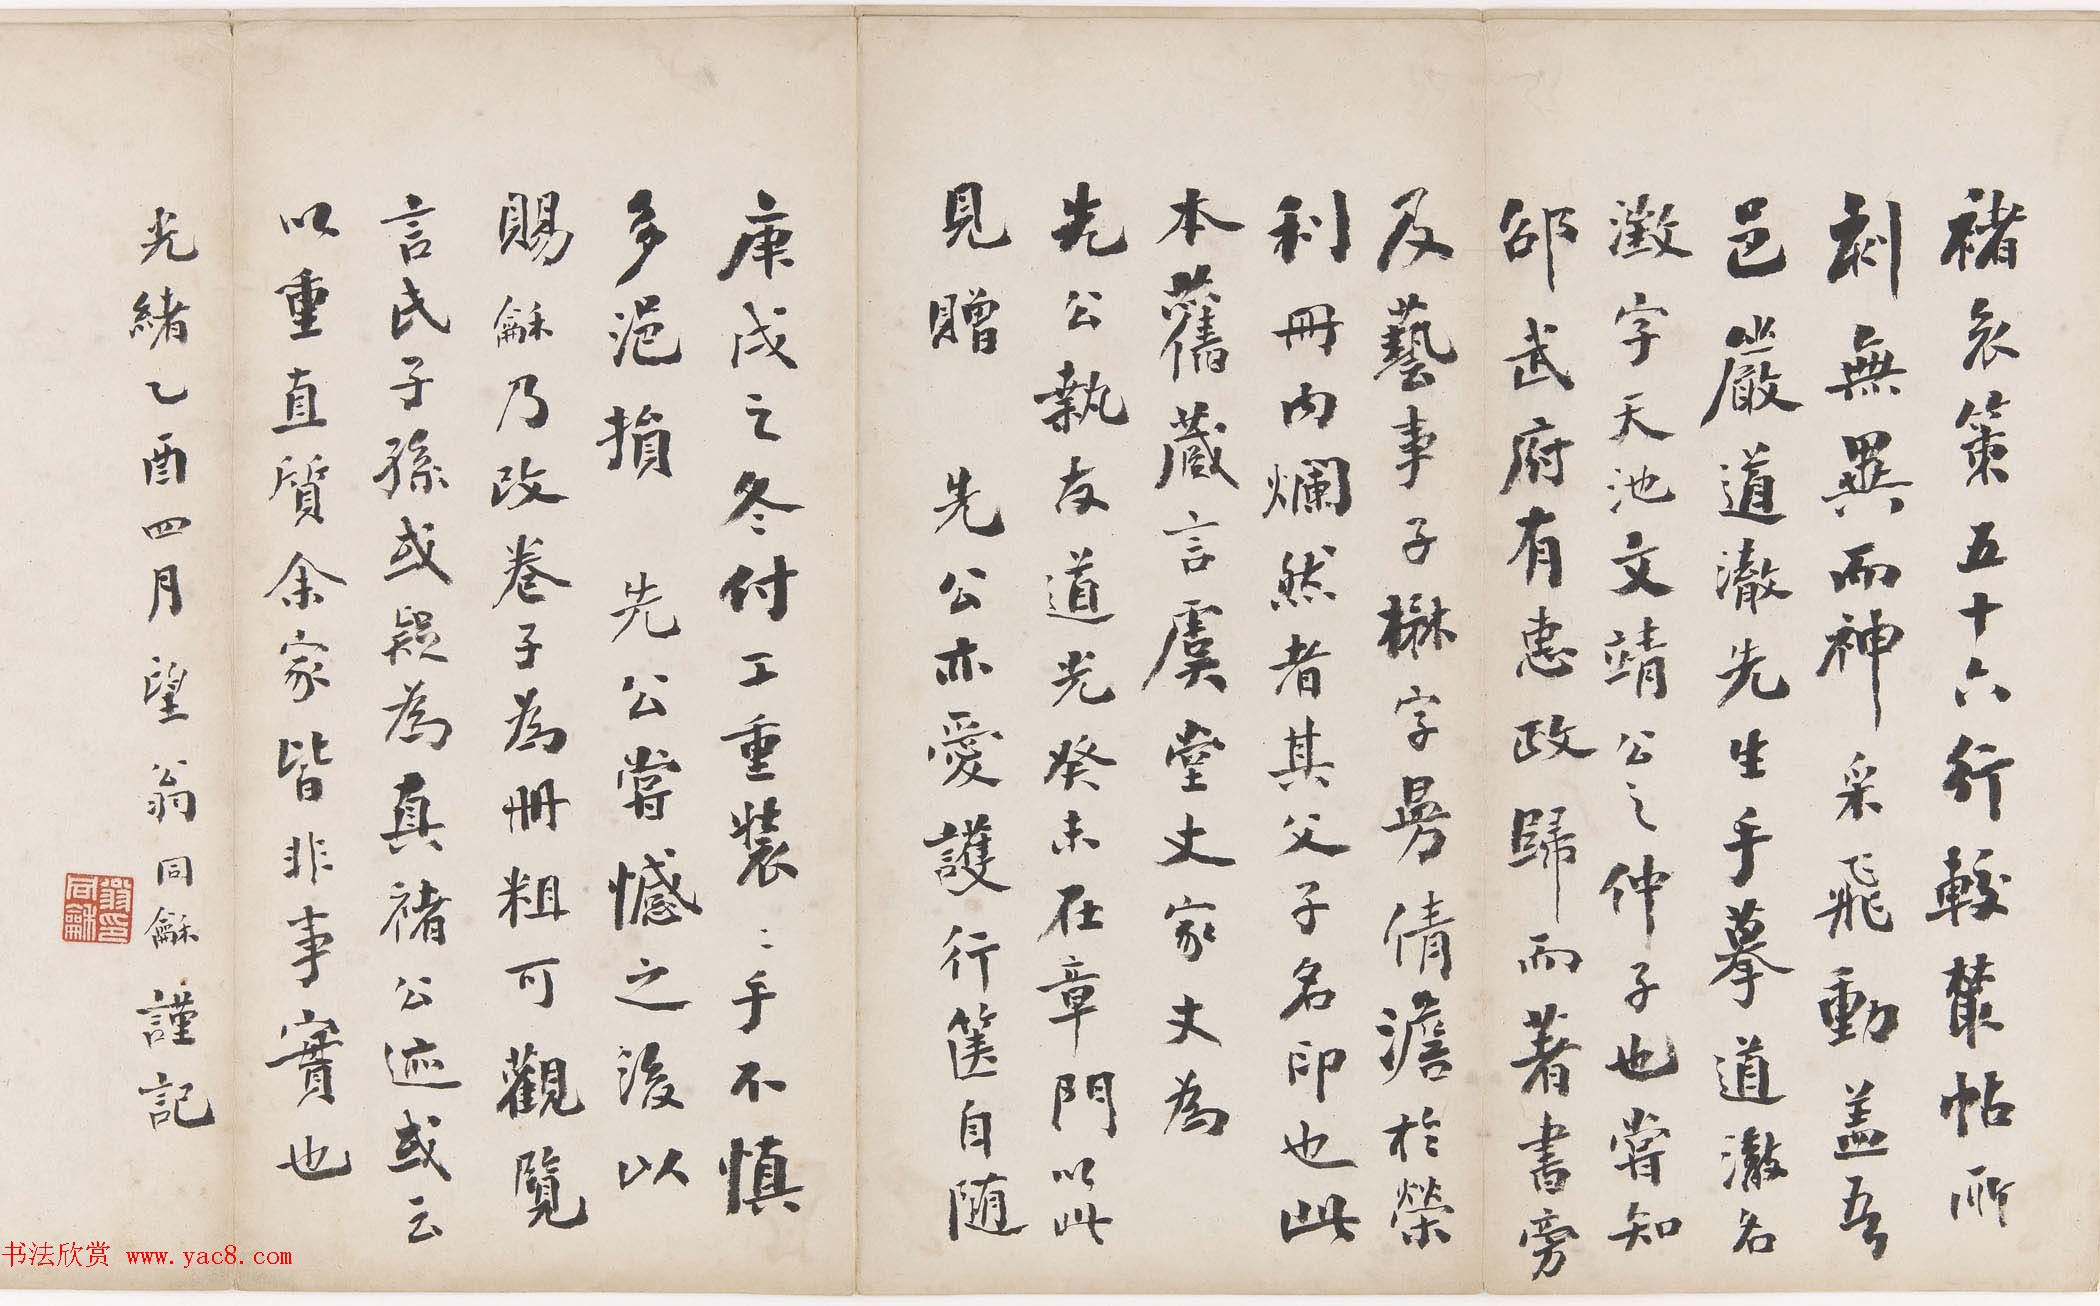 褚哀策五十六行較叢帖所
刻無異而神采飛動蓋吾
邑嚴道澈先生手摹道澈名
澂字天池文靖公之仲子也嘗知
邵武府有惠政歸而著書旁
及藝事子楙字曼倩澹於榮
利冊內爛然者其父子名印也此
本舊藏言虞堂丈家丈為
先公執友道光癸未在章門以此
見贈 先公亦愛護行篋自隨
庚戌之冬付工重裝〻手不慎
多浥損 先公嘗憾之後以
賜龢乃改卷子為冊粗可觀覽
言氏子孫或疑為真褚公迹或云
以重直質余家皆非事實也
光緒乙酉四月望翁同龢謹記
翁同龢印
书法欣赏 www.yac8.com